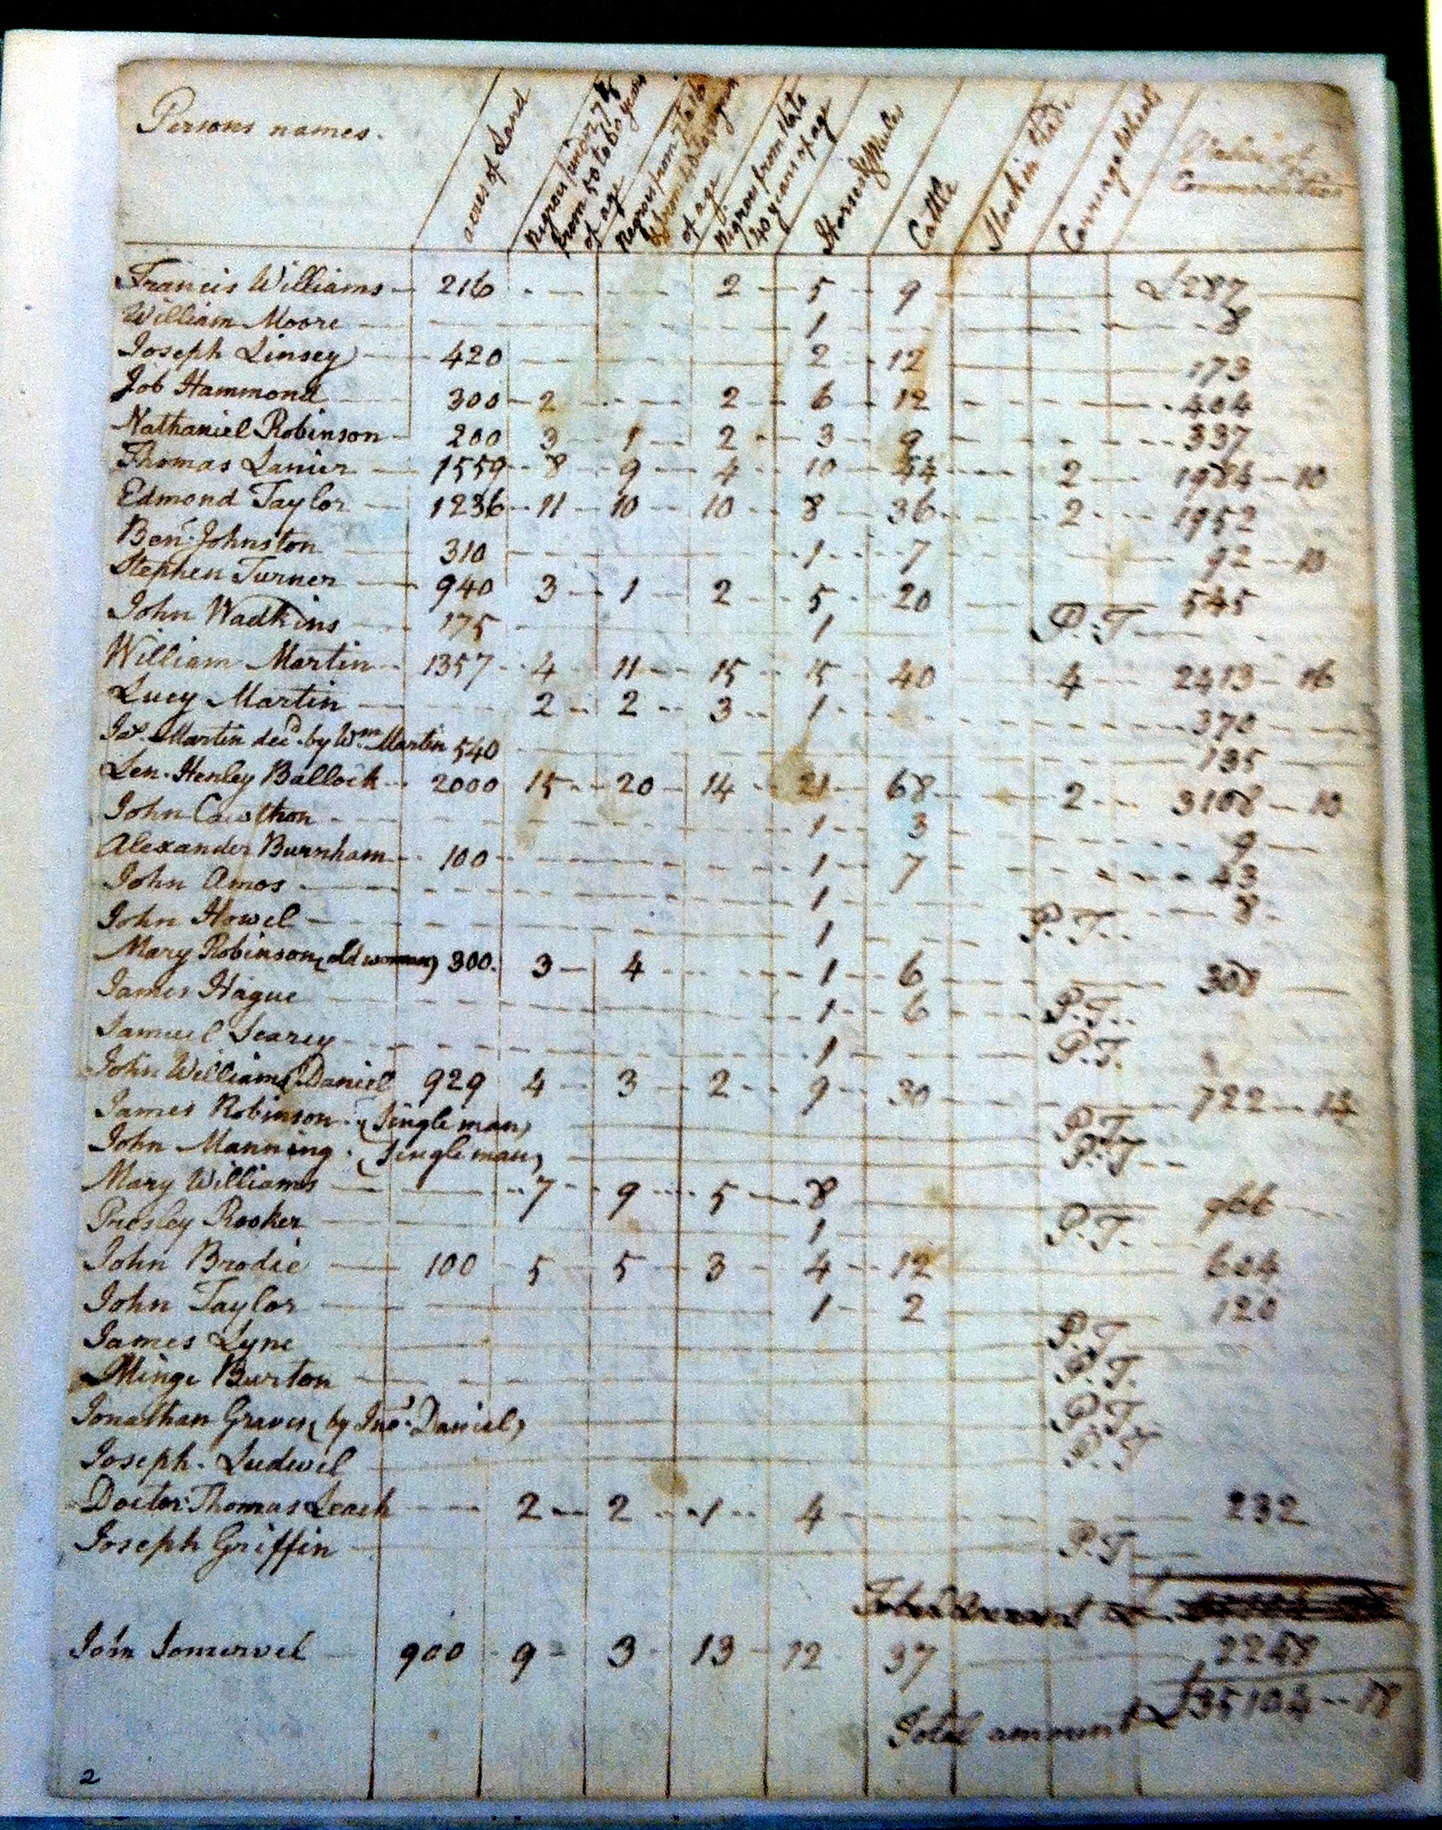 Persons names.
acres of Land
Negroes under 7 &
from 50 to 60 years
of age
Negroes from 7 to 16
& from 40 to 50 years
of age
Negroes from 16 to
40 years of age
Horses & Mules
Cattle
Stock in Trade
Carriage Wheels
Value of
Commodities
Francis Williams 216 2 5 9 £287
William Moore 1 8
Joseph Linsey 420 2 12 173
Job Hammond 300 2 2 6 12 404
Nathaniel Robinson 200 3 1 2 3 9 337
Thomas Lanier 1559 8 9 4 10 44 2 1984 - 10
Edmond Taylor 1236 11 10 10 8 36 2 1952
Ben. Johnston 310 1 7 92 - 10
Stephen Turner 940 3 1 2 5 20 545
John Wadkins 175 1 P.T
William Martin 1357 4 11 15 15 40 4 2413 - 16
Lucy Martin 2 2 3 1 370
Jas. Martin decd. by Wm. Martin 540 135
Len. Henley Bullock 2000 15 20 14 21 68 2 3108 - 10
John Cawthon 1 3 9
Alexander Burnham 100 1 7 43
John Amos 1 8
John Howel 1 P.T.
Mary Robinson (old woman) 300. 3 4 1 6 308
James Hague 1 6 P.T.
Samuel Searcy 1 P.T.
John Williams (Daniel 929 4 3 2 9 30 722 - 13
James Robinson (Single man) P.T
John Manning (Single man) P.T
Mary Williams 7 9 5 8 966
Presley Rooker 1 P.T.
John Brodie 100 5 5 3 4 12 604
John Taylor 1 2 120
James Lyne P.T.
Minge Burton P.T.
Jonathan Graves (by Jno. Daniel) P.T.
Joseph Ludwel P.T
Doctor Thomas Leach 2 2 1 4 232
Joseph Griffin P.T
John Somervel 900 9 3 13 12 37 2258
Total amount £35104 - 18
2